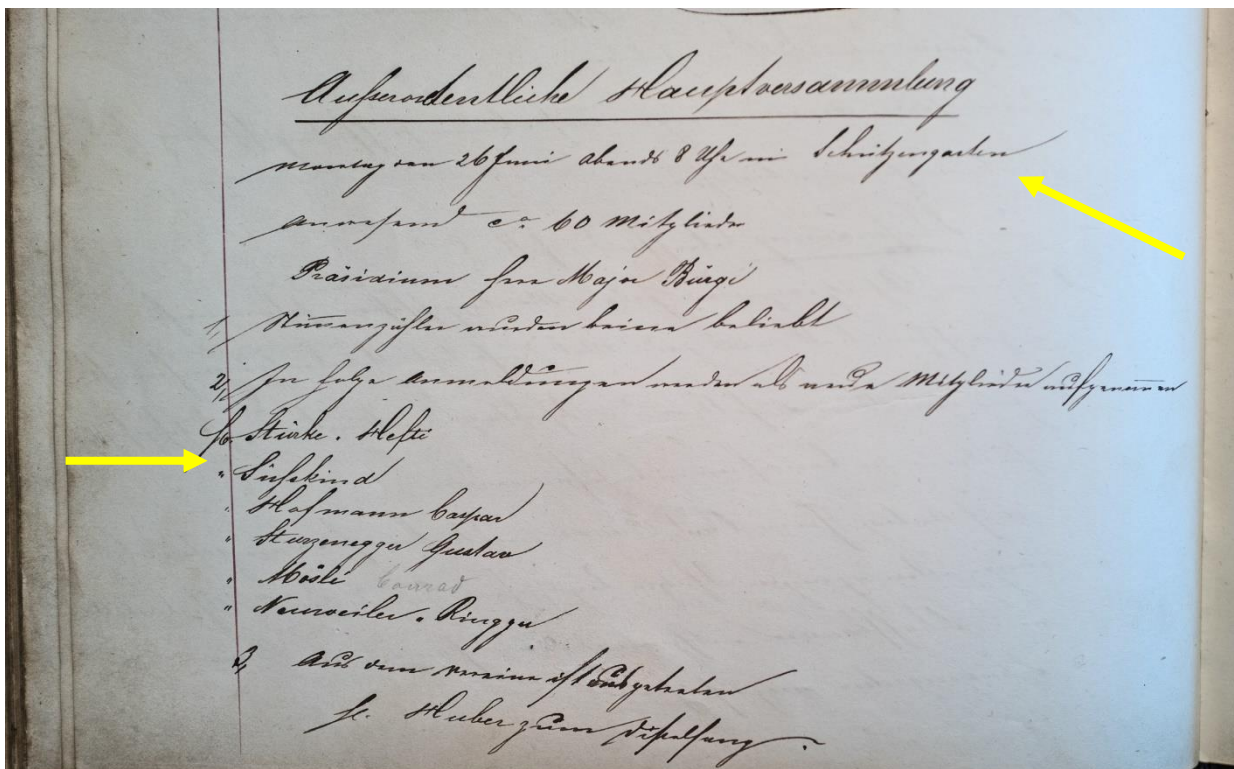 Außerordentliche Hauptversammlung
Montag den 26 Juni abends 8 Uhr im Schützengarten
Anwesend ca. 60 Mitglieder
Präsidium Herr Major Bürgi
1, Stimmenzähler wurden keine beliebt
2, In Folge Anmeldungen werden als neue Mitglieder aufgenommen
Hr. Stürke-Hefti
" Süßkind
" Hofmann Caspar
" Sturzenegger Gustav
" Mösli Conrad
" Neuweiler-Ringger
3, Aus dem Vereine ist ausgetreten
Hr. Huber zum